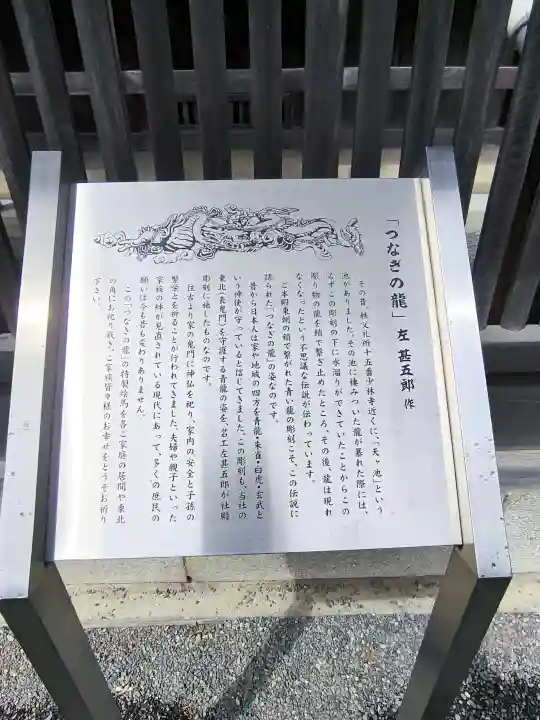 「つなぎの龍」 左 甚五郎 作
その昔、秩父札所十五番少林寺近くに、「天ヶ池」という
池がありました。その池に棲みついた龍が暴れた際には、
必ずこの彫刻の下に水溜りができていたことからこの
彫り物の龍を鎖で繋ぎ止めたところ、その後、龍は現れ
なくなったという不思議な伝説が伝わっています。
ご本殿東側の鎖で繋がれた青い龍の彫刻こそ、この伝説に
語られた「つなぎの龍」の姿なのです。
昔から日本人は家や地域の四方を青龍・朱雀・白虎・玄武と
いう神使が守っていると信じてきました。この彫刻も、当社の
東北（表鬼門）を守護する青龍の姿を、名工左甚五郎が社殿
彫刻に施したものなのです。
往古より家の鬼門に神仏を祀り、家内の安全と子孫の
繁栄とを祈ることが行われてきました。夫婦や親子といった
家族の絆が見直されている現代にあって、多くの庶民の
願いは今も昔も変わりありません。
この「つなぎの龍」の特製絵馬を各ご家庭の居間や東北
の角にお祀り頂き、ご家族皆々様のお幸せをどうぞお祈り
下さい。